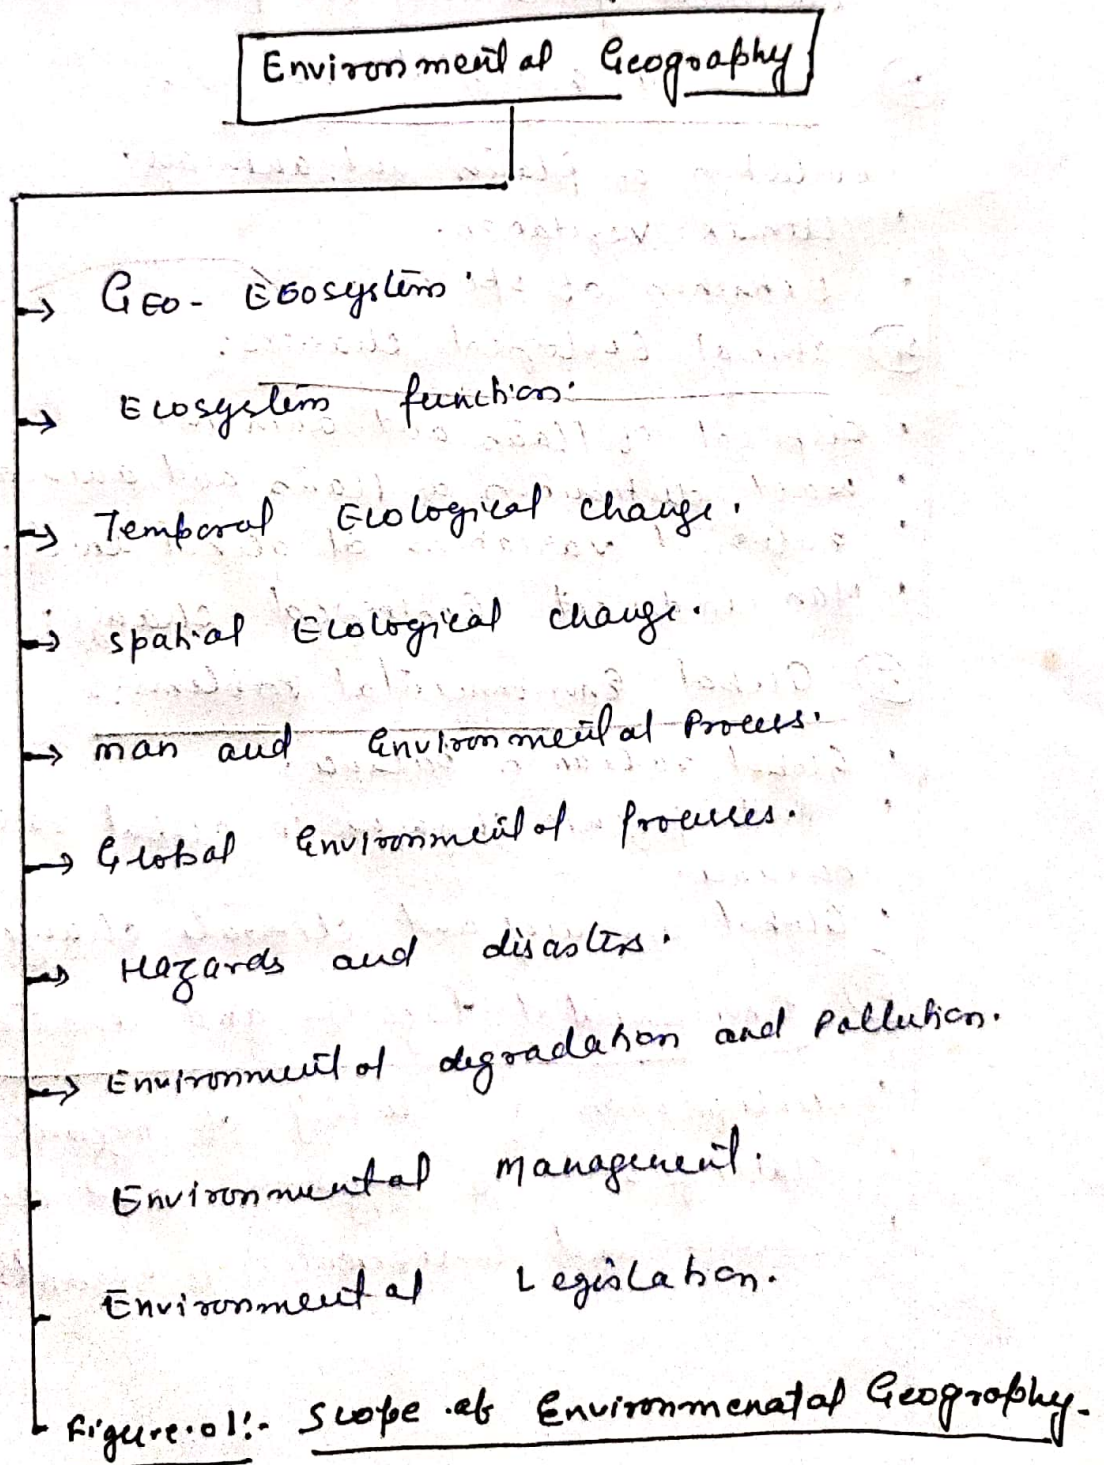 Environmental Geography
→ Geo-Ecosystem.
→ Ecosystem function.
→ Temporal Ecological change.
→ spatial Ecological change.
→ man and Environmental Process.
→ Global Environmental Processes.
→ Hazards and disasters.
→ Environmental degradation and Pollution.
Environmental Management.
Environmental Legislation.
Figure.01:- Scope of Environmenatal Geography.